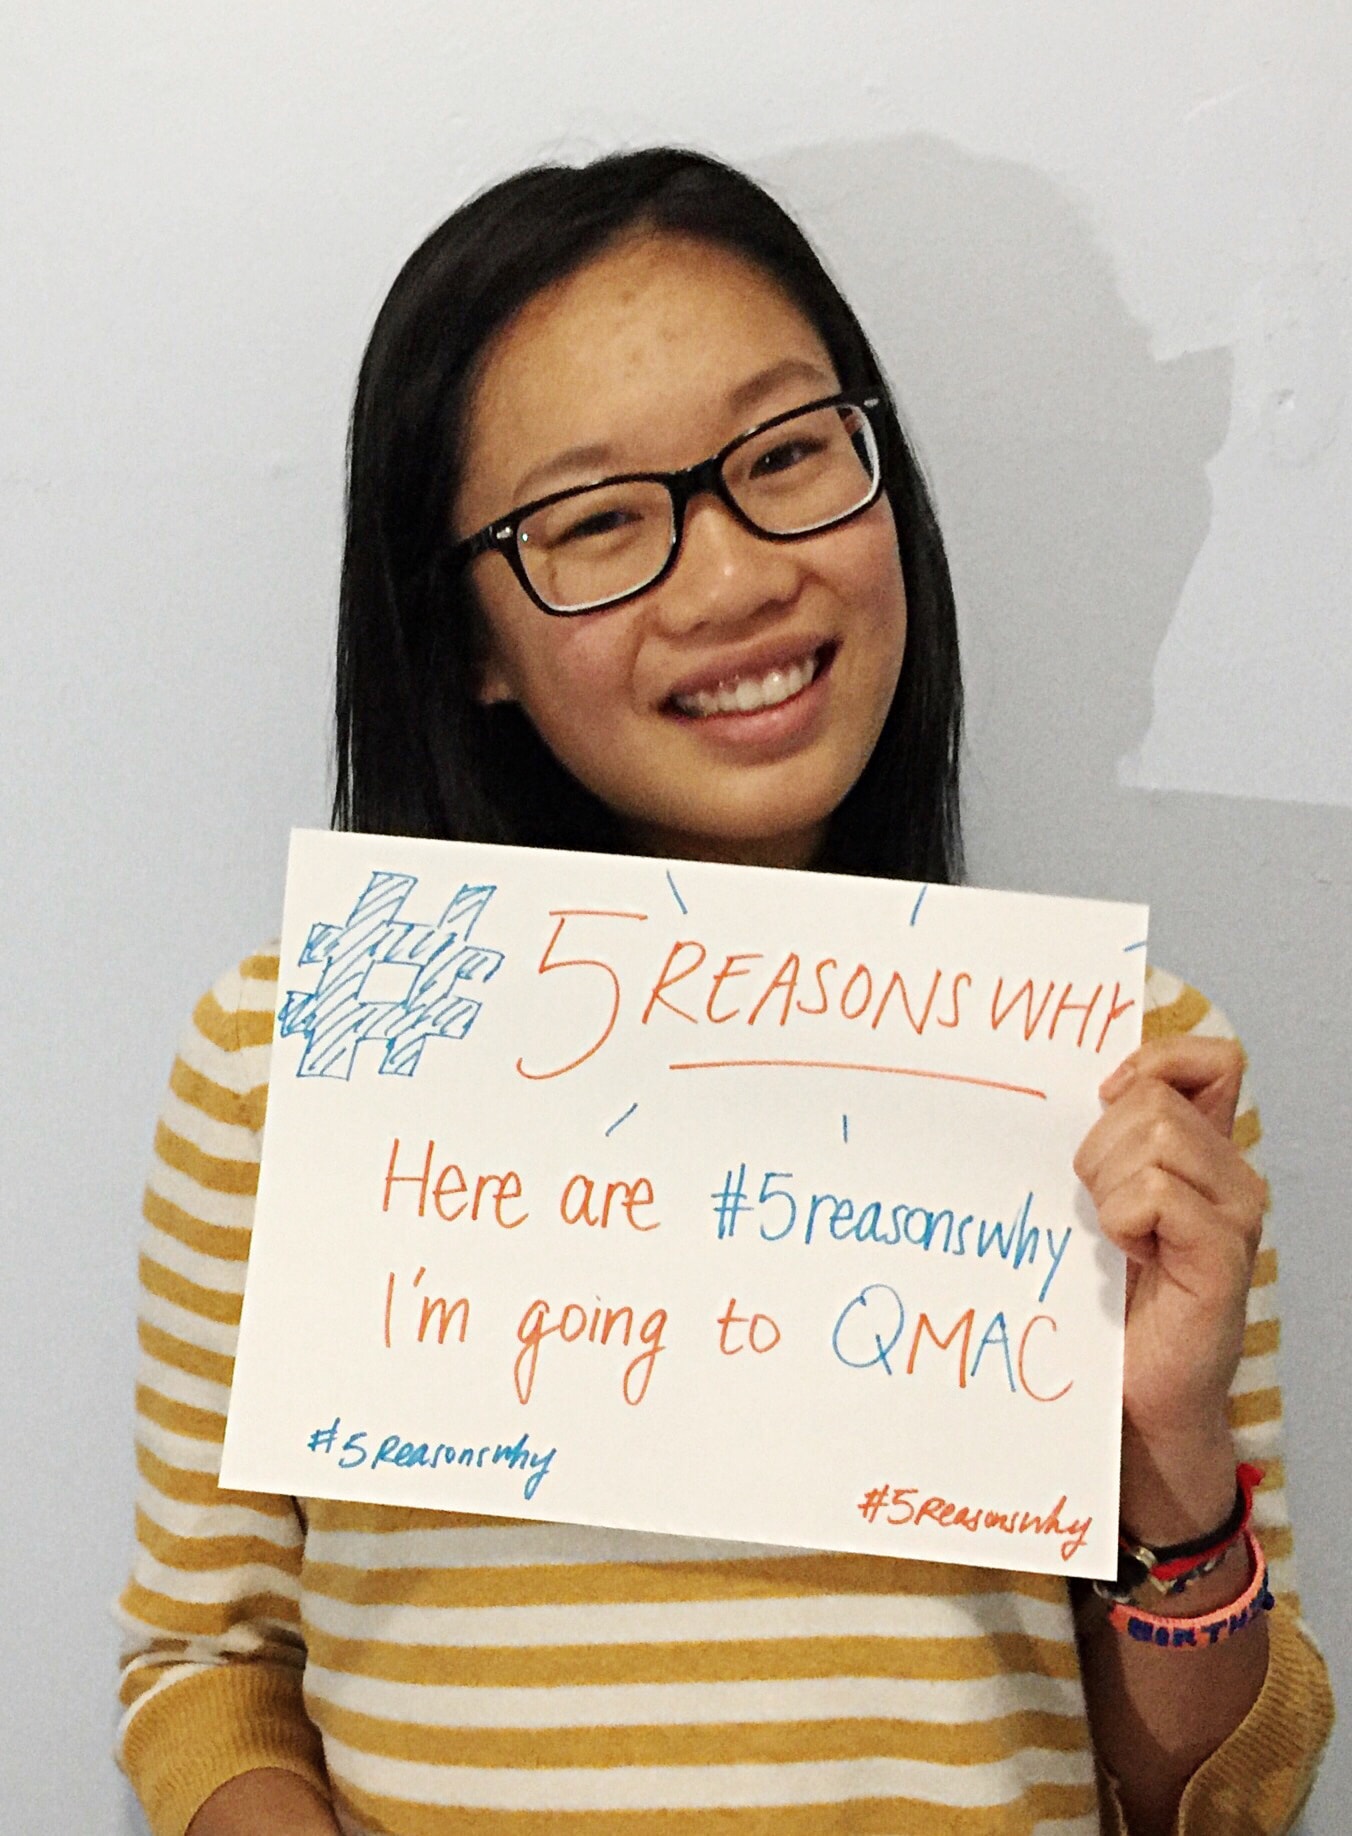 #5REASONSWHY
Here are #5reasonswhy
I'm going to QMAC
#5Reasonswhy
#5Reasonswhy